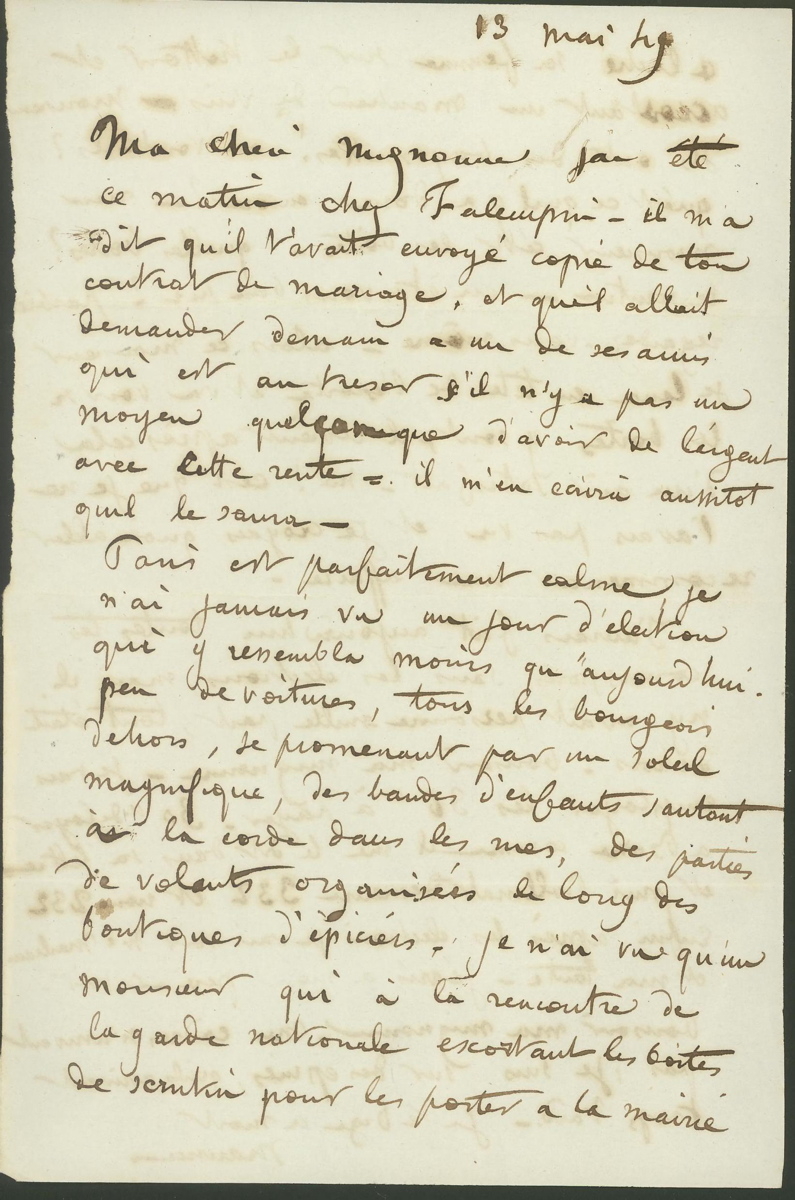 13 mai 49
Ma cher mignonne j'ai été
ce matin chez Falempin - il m'a
dit qu'il t'avait envoyé copie de ton
contrat de mariage, et qu'il allait
demander demain a un de ses amis
qui est au tresor s'il n'y a pas un
moyen quelconque d'avoir de l'argent
avec cette rente = il m'en ecrira aussitot
quil le saura -
Paris est parfaitement calme, je
n'ai jamais vu un jour d'election
qui y ressembla moins qu'aujourd'hui.
peu de voitures, tous les bourgeois
dehors, se promenant par un soleil
magnifique, des bandes d'enfants sautant
à la corde dans les rues, des parties
de volants organisées le long des
boutiques d'épiciers. je n'ai vu qu'un
monsieur qui à la rencontre de
la garde nationale escortant les boites
de scrutin pour les porter a la mairie